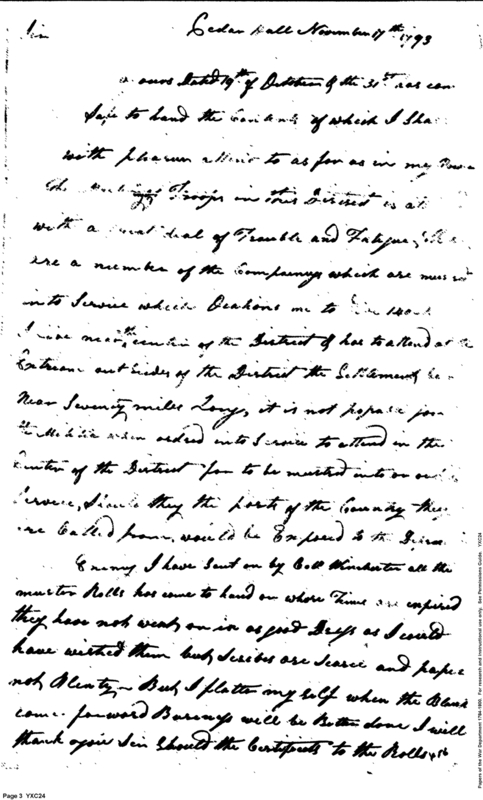 Sir
Cedar Hall November 17th 1793
yours Dated 19th of October & the 31st has com
Safe to hand the Contents of which I Sha
with pleasure attend to as far as in my Powe
the Troops in this District is at
with a great deal of Trouble and Fatigue
are a number of the Companeys which are
into Service which Ocations me to
I live near the center of the District & has to attend at the
Extream out Sides of the District the Settlement be
Near Seventy miles Long, it is not for
the Militia when ordred into Service to attend in the
Center of the District for to be mustred into or out
Service, Should they the parts of the Country they
are Called from, would be Exposed to the
Enemy I have Sent on by Coll Winchester all the
muster Rolls has come to hand on whose Time are expired
they have not went on in as good Dress as I could
have wished them but Scribes are Scarce and pape
not Plenty But I flatter my Self when the Blank
come forward Buisness will be Better done I will
thank you Sir Should the Certificets to the Rolls
Page 3 YXC24
Papers of the War Department 1784-1800. For research and instructional use only. See Permissions Guide. YXC24